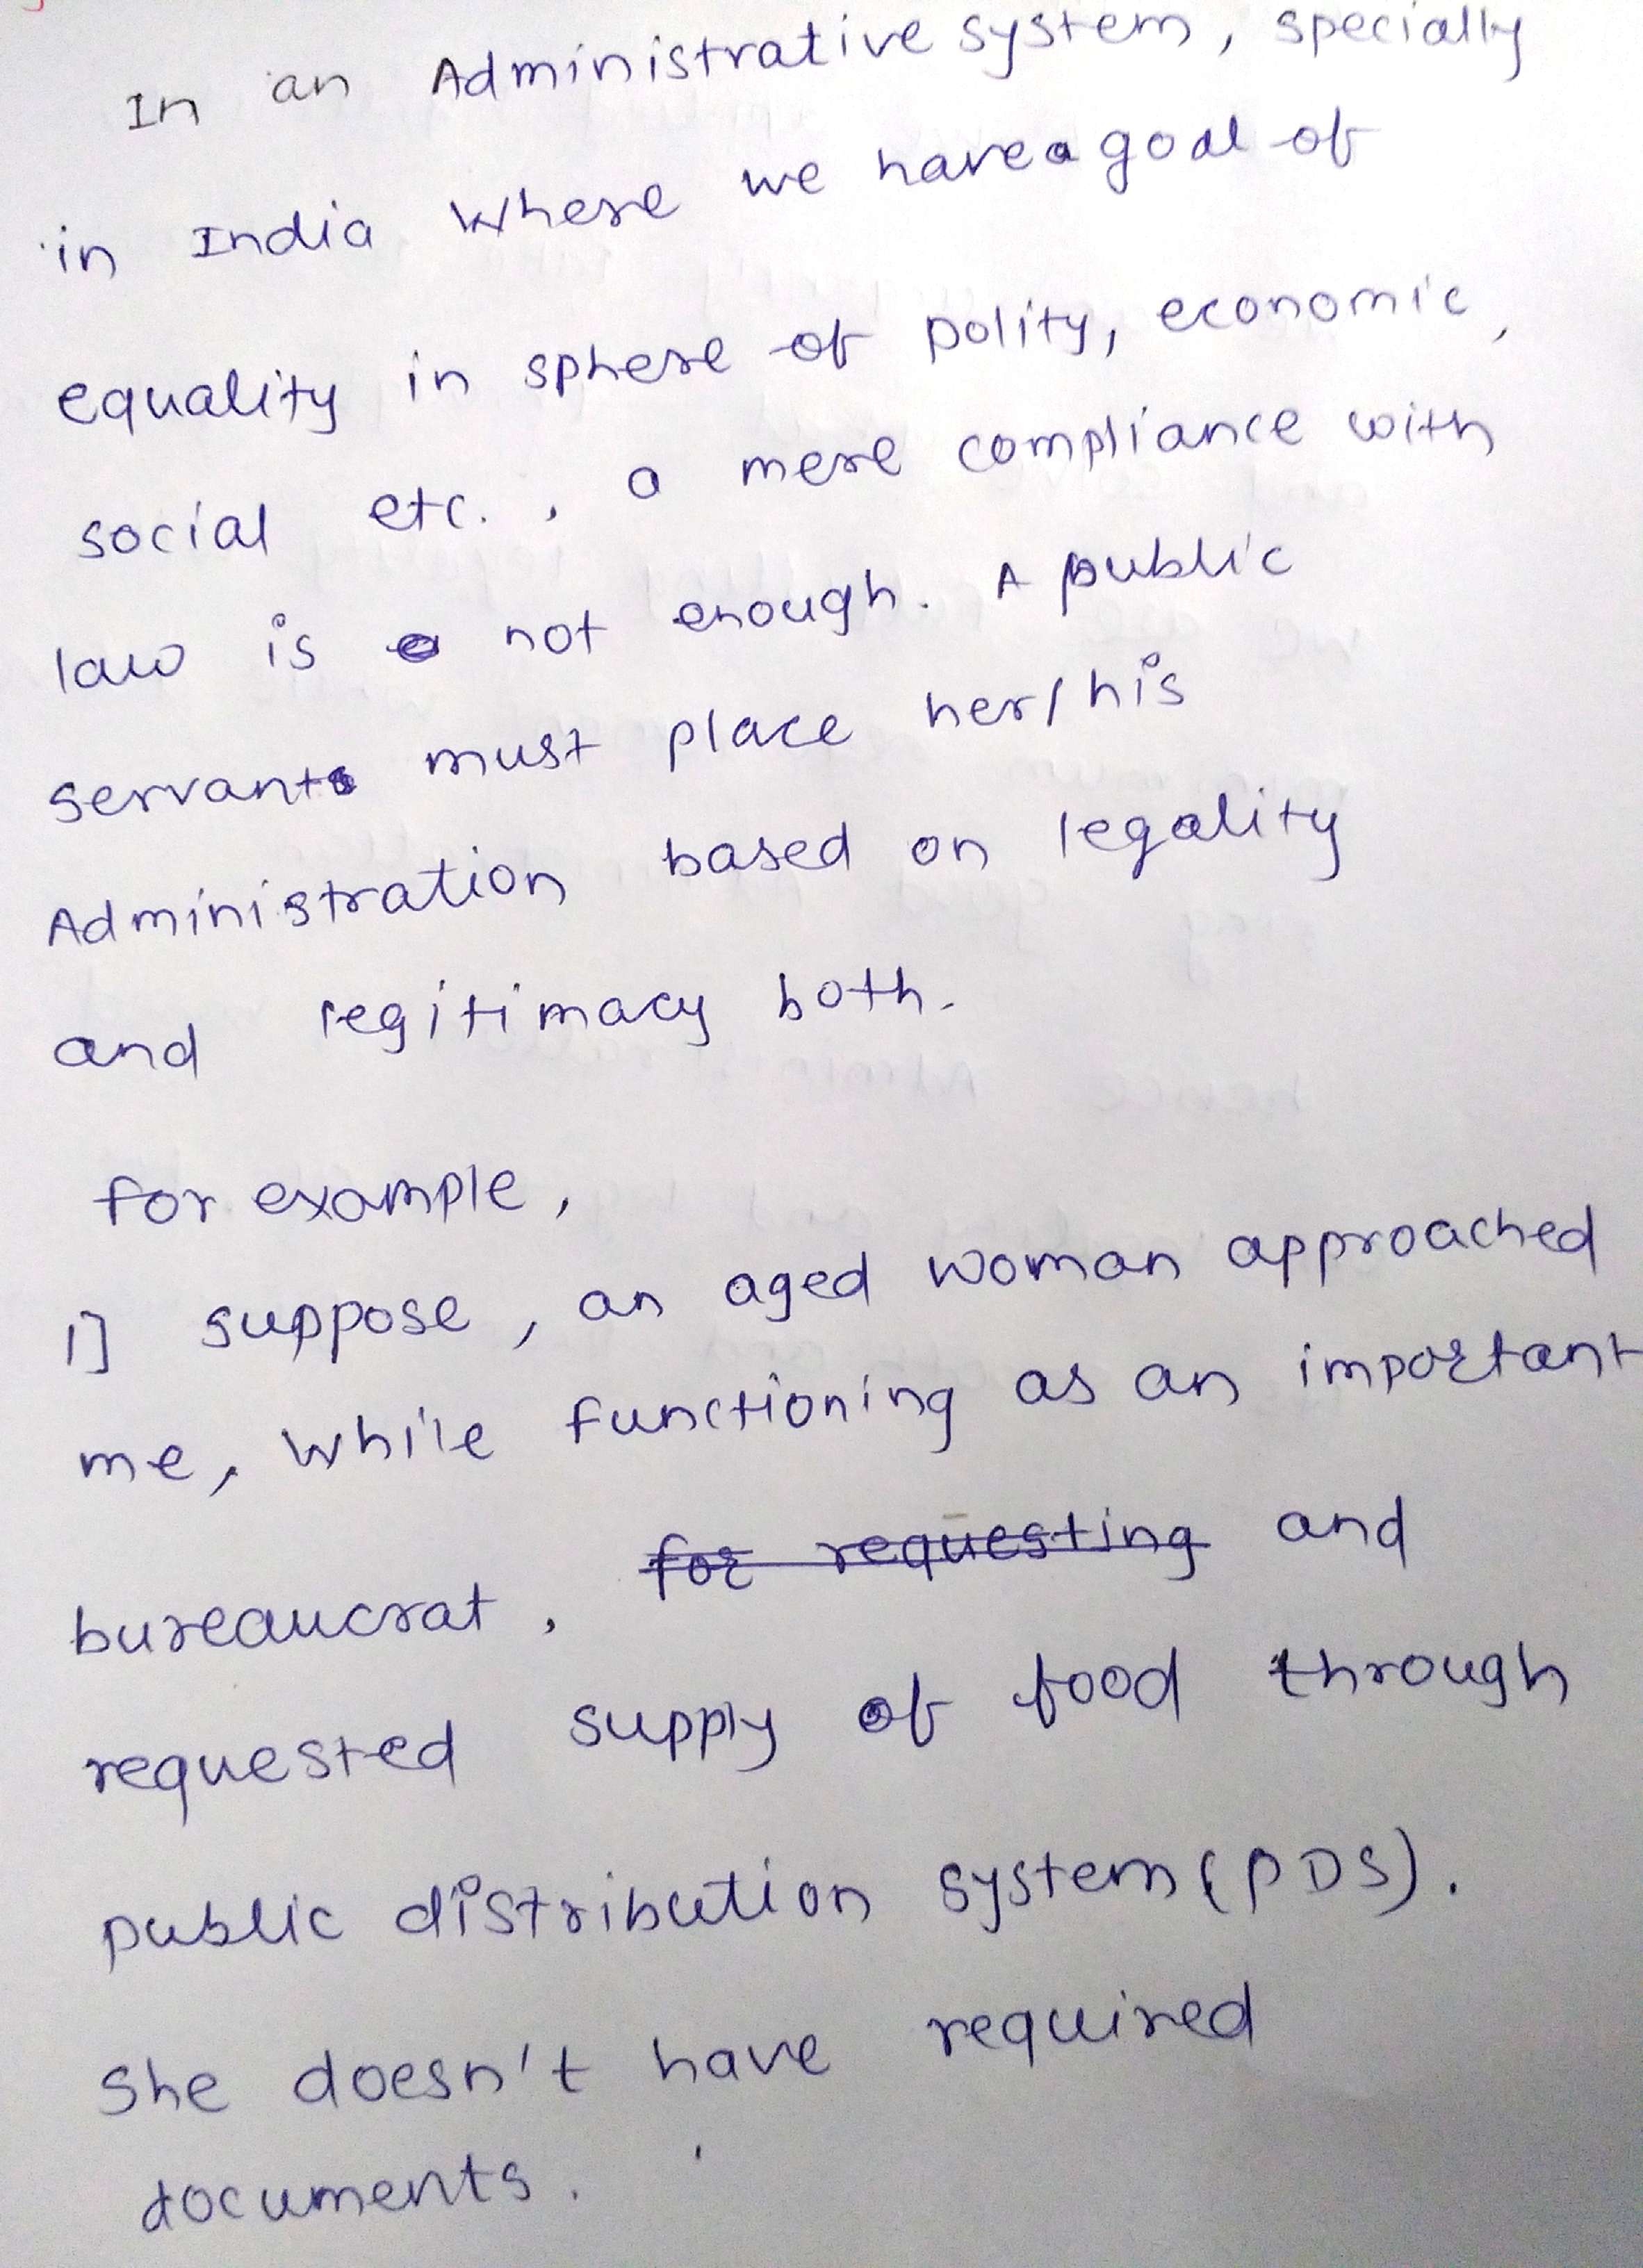 In an Administrative system, specially
in India where we have a goal of
equality in sphere of polity, economic,
social etc., a mere compliance with
law is not enough. A public
servant must place her/his
Administration based on legality
and legitimacy both.
for example,
1] suppose, an aged woman approached
me, while functioning as an important
bureaucrat, for requesting and
requested supply of food through
public distribution system (PDS).
She doesn't have required
documents.